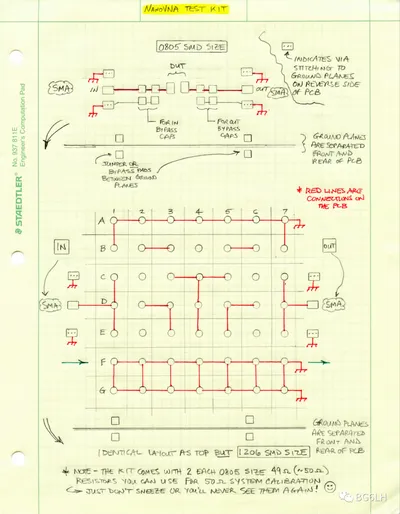 NANOVNA TEST KIT
0805 SMD SIZE
DUT
INDICATES VIA
STITCHING TO
GROUND PLANES
ON REVERSE SIDE
OF PCB
SMA
IN
OUT
SMA
FOR IN
BYPASS
CAPS
FOR OUT
BYPASS
CAPS
GROUND PLANES
ARE SEPARATED
FRONT AND
REAR OF PCB
JUMPER OR
BYPASS PADS
BETWEEN GROUND
PLANES
* RED LINES ARE
CONNECTIONS ON
THE PCB
STAEDTLER
No. 937 811E
Engineer's Computation Pad
1 2 3 4 5 6 7
A
B
IN
OUT
C
SMA
D
SMA
E
F
G
GROUND PLANES
ARE SEPARATED
FRONT AND
REAR OF PCB
IDENTICAL LAYOUT AS TOP BUT 1206 SMD SIZE
* NOTE - THE KIT COMES WITH 2 EACH 0805 SIZE 49Ω (~50Ω)
RESISTORS YOU CAN USE FOR 50Ω SYSTEM CALIBRATION
JUST DON'T SNEEZE OR YOU'LL NEVER SEE THEM AGAIN!
BG6LH